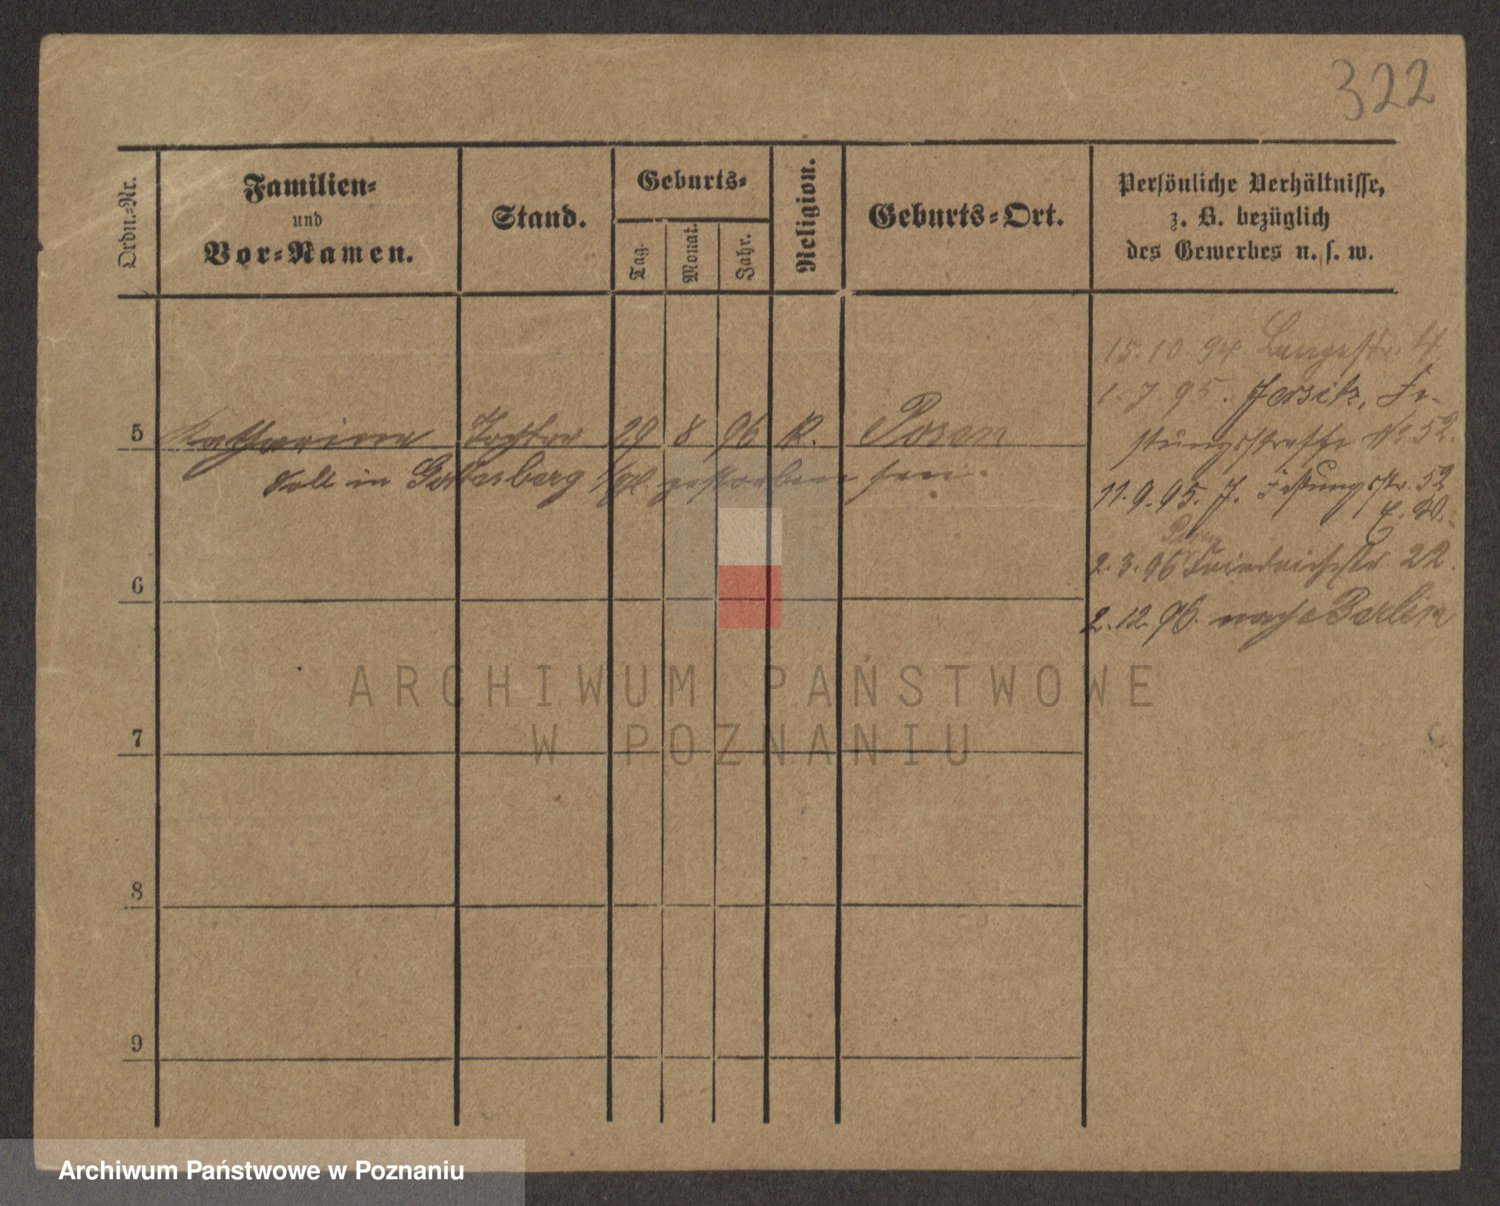 322
Ordn.-Nr.
Familien-
und
Vor-Namen.
Stand.
Geburts-
Tag.
Monat.
Jahr.
Religion.
Geburts-Ort.
Persönliche Verhältnisse,
z. B. bezüglich
des Gewerbes u. s. w.
15. 10. 94. Langestr. 4
1. 7 95. Jersitz, Fe-
5 Katharina Tochter 29 8 96 K. Posen
stungsstrasse No 52.
soll in gestorben sein.
11. 9. 95. J. Festungsstr. 52
6
2. 3. 96 Friedrichstr. 22.
2. 12. 96. nach Berlin
ARCHIWUM PAŃSTWOWE
W POZNANIU
7
8
9
Archiwum Państwowe w Poznaniu